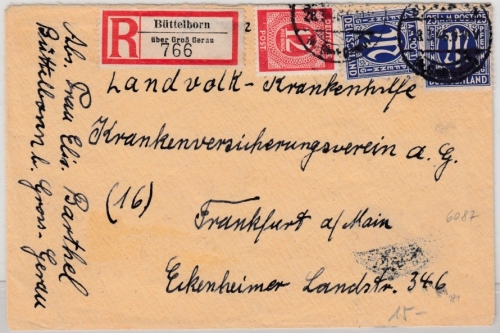 R
Büttelborn
über Groß Gerau
766
2
12
DEUTSCHE
POST
AM POST
PFENNIG
DEUTSCHLAND
AM POST
PFENNIG
DEUTSCHLAND
Landvolk-Krankenhilfe
Krankenversicherungsverein a. G.
(16)
Frankfurt a/Main
Eckenheimer Landstr. 346
Abs. Frau Elis. Barthel
Büttelborn b. Gross-Gerau
6087
15-